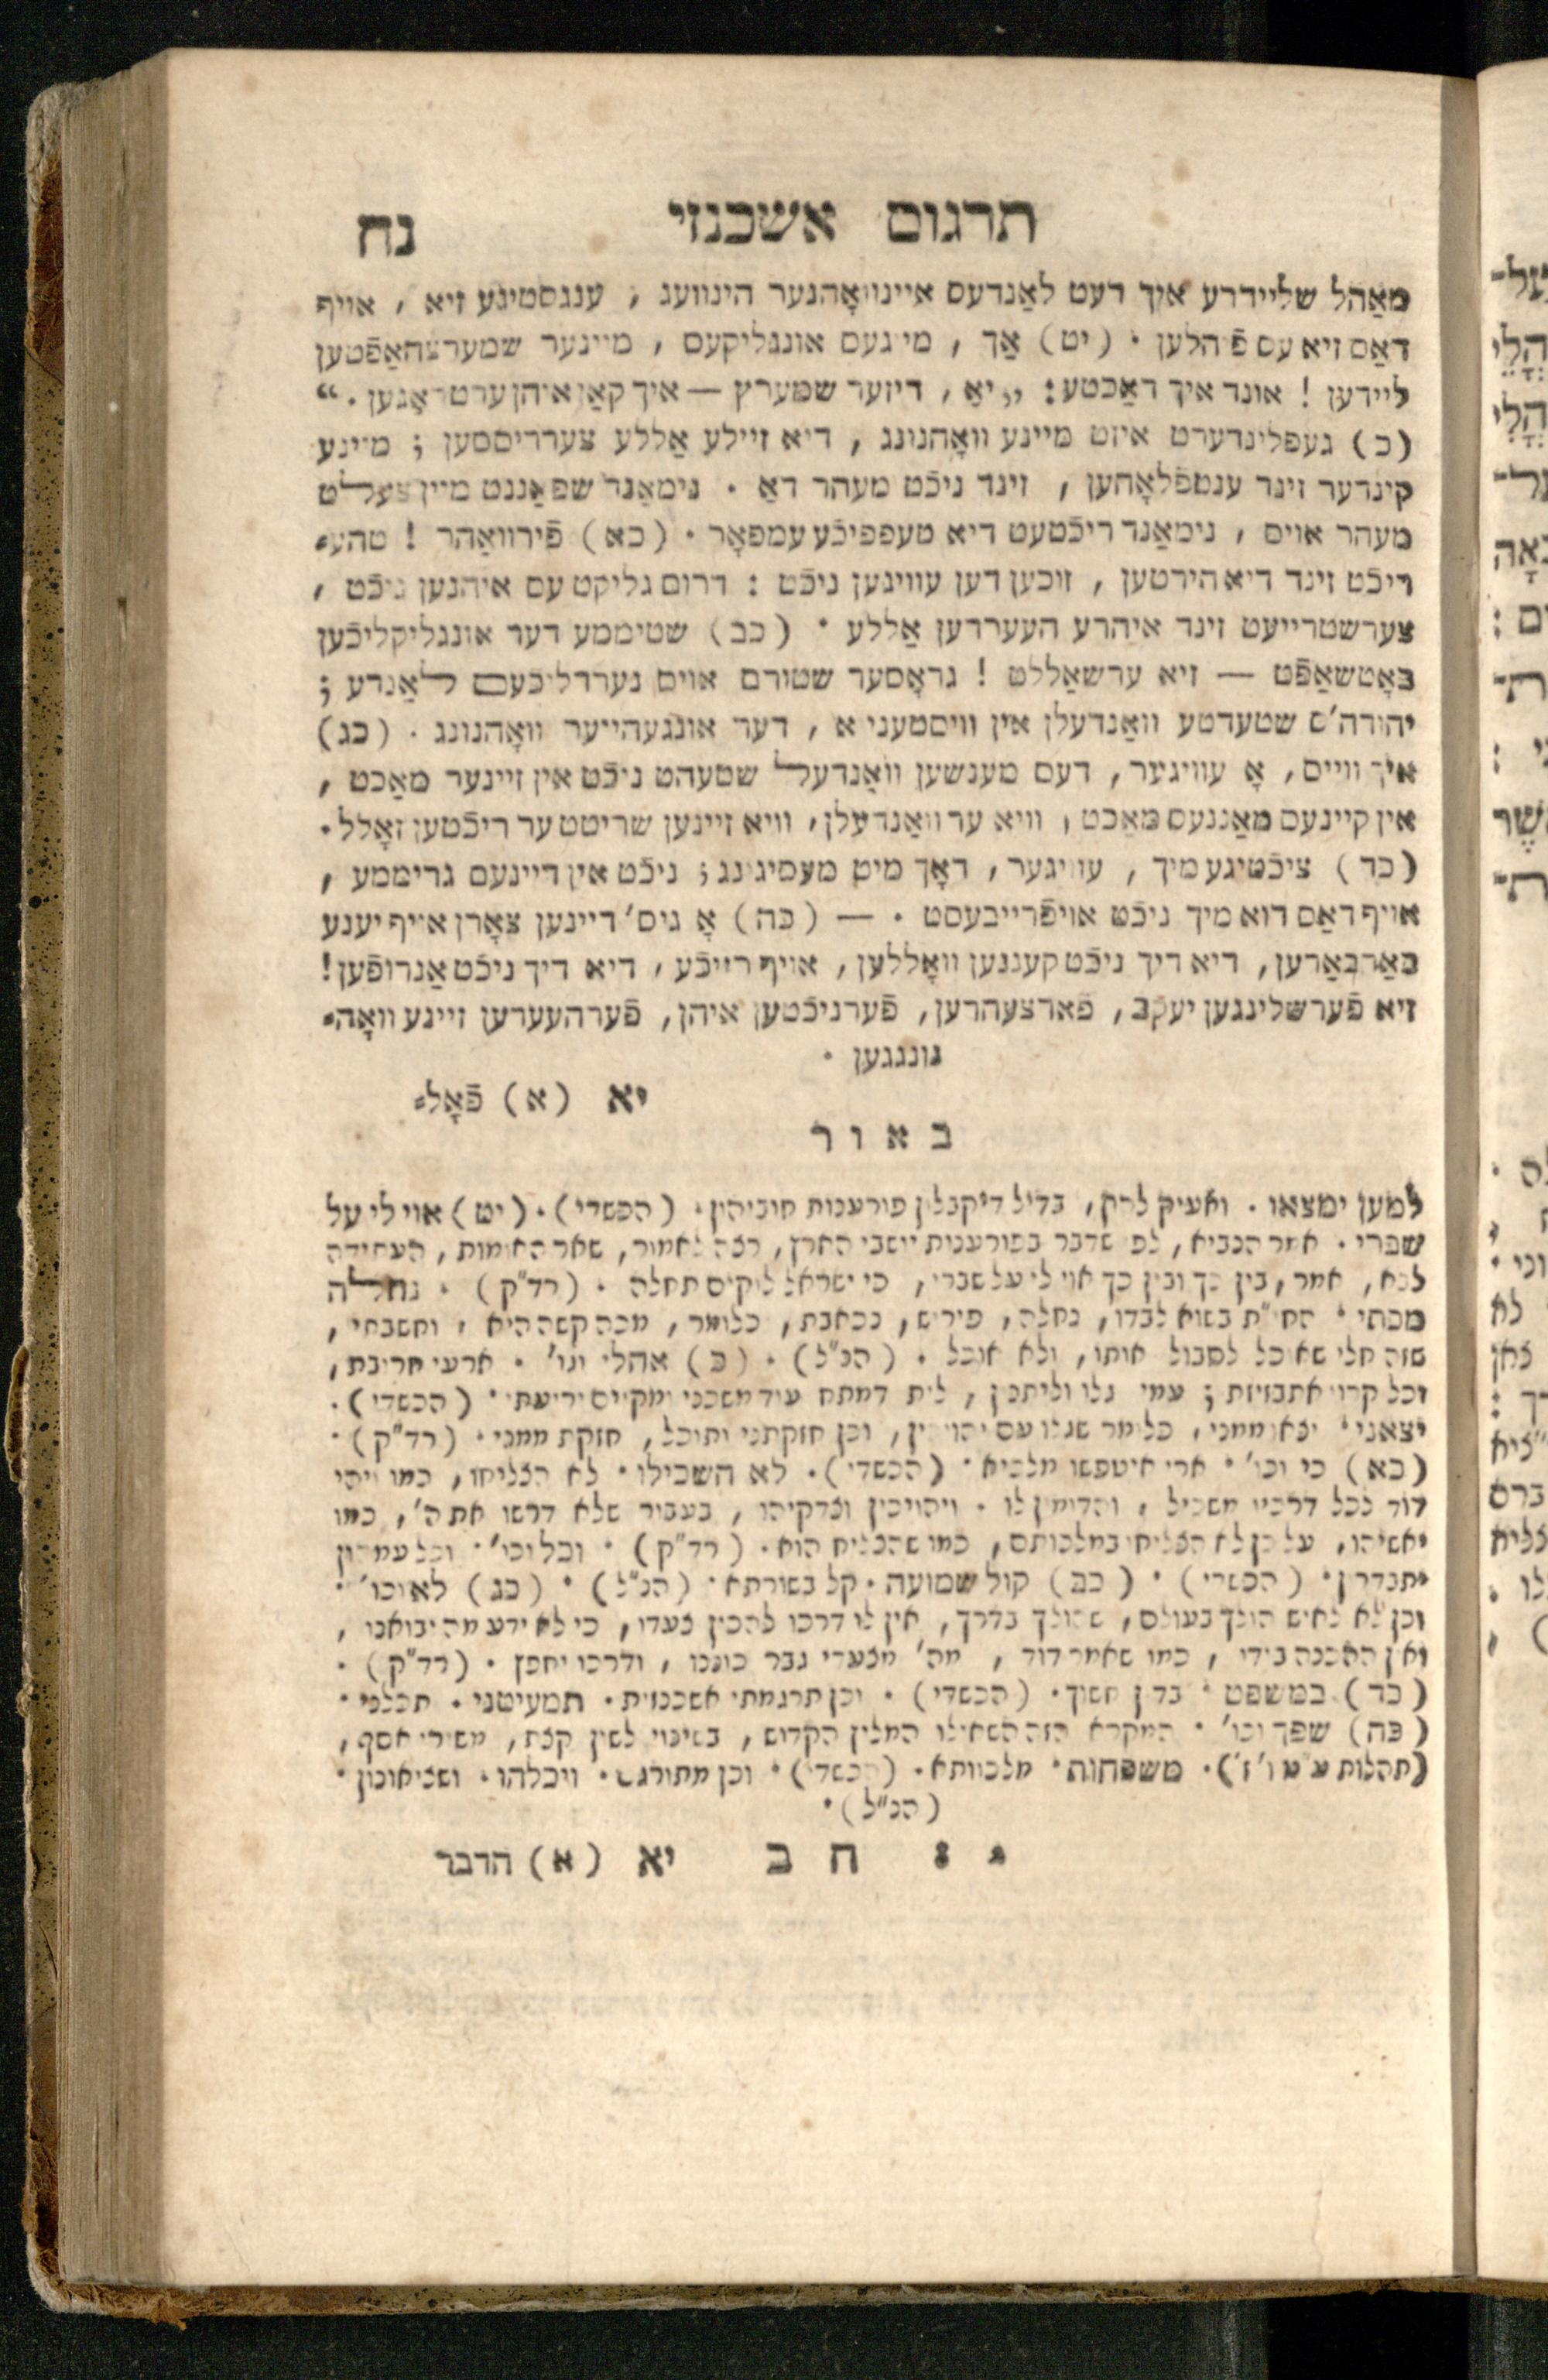 תרגום אשכנזי נח
מאַהל שליידרע איך דעט לאַנדעס איינוואָהנער הינוועג , ענגסטיגע זיא , אויף
דאַס זיא עס פֿיהלען . (יט) אַך , מיינעס אונגליקעס , מיינער שמערצהאַפֿטען
ליידען ! אונד איך דאַכטע : „יאַ , דיזער שמערץ — איך קאַן איהן ערטראַגען . “
(כ) געפלינדערט איזט מיינע וואָהנונג , דיא זיילע אַללע צערריססען ; מיינע
קינדער זינד ענטפֿלאָהען , זינד ניכֿט מעהר דאַ . נימאַנד שפאַננט מיין צעלט
מעהר אויס , נימאַנד ריכֿטעט דיא טעפפיכֿע עמפאָר . (כא) פֿירוואַהר ! טהע⸗
ריכֿט זינד דיא הירטען , זוכען דען עוויגען ניכֿט : דרום גליקט עס איהנען ניכֿט ,
צערשטרייעט זינד איהרע העערדען אַללע . (כב) שטיממע דער אונגליקליכֿען
באָטשאַפֿט — זיא ערשאַללט ! גראָסער שטורם אויס נערדליכֿעם לאַנדע ;
יהודה'ס שטעדטע וואַנדעלן אין וויסטעניא , דער אונגעהייער וואָהנונג . (כג)
איך ווייס , אָ עוויגער , דעס מענשען וואַנדעל שטעהט ניכֿט אין זיינער מאַכט ,
אין קיינעס מאַננעס מאַכט , וויא ער וואַנדעלן , וויא זיינען שריטט ער ריכֿטען זאָלל .
(כד) ציכֿטיגע מיך , עוויגער , דאָך מיט מעסיגונג ; ניכֿט אין דיינעם גריממע ,
אויף דאַס דוא מיך ניכֿט אויפֿרייבעסט . — (כה) אָ גיס' דיינען צאָרן אויף יענע
באַרבאַרען , דיא דיך ניכֿט קעננען וואָללען , אויף רייכֿע , דיא דיך ניכֿט אַנרופֿען !
זיא פֿערשלינגען יעקב , פֿארצעהרען , פֿערניכֿטען איהן , פֿערהעערען זיינע וואָה⸗
נונגען .
יא (א) פֿאָל⸗
באור
למען ימצאו . ואעיק להון , בדיל דיקבלון פורענות חוביהון . (הכשדי) . (יט) אוי לי על
שברי . אמר הנביא , לפי שדבר בפורענות יושבי הארץ , רצה לאמור , שאר האומות , העתידה
לבא , אמר , בין כך ובין כך אוי לי על שברי , כי ישראל לוקים תחלה . (רד"ק) . נחלה
מכתי . החי"ת בשוא לבדו , נחלה , פירוש , נכאבת , כלומר , מכה קשה היא , וחשבתי ,
שזה חלי שאוכל לסבול אותו , ולא אוכל . (הנ"ל) . (כ) אהלי וגו' . ארעי חריבת ,
וכל קרוי אתבזיזת ; עמי גלו וליתכון , לית דמתח עוד משכני ומקיים יריעתי . (הכשדי) .
יצאני . יצאו ממני , כלומר שגלו עם יהויכין , וכן חזקתני ותוכל , חזקת ממני . (רד"ק) .
(כא) כי וכו' . ארי איטפשו מלכיא . (הכשדי) . לא השכילו . לא הצליחו , כמו ויהי
דוד לכל דרכיו משכיל , והדומין לו . ויהויכין וצדקיהו , בעבור שלא דרשו את ה' , כמו
יאשיהו , על כן לא הצליחו במלכותם , כמו שהצליח הוא . (רד"ק) . וכל וכו' . וכל עמהון
יתבדרון . (הכשדי) . (כב) קול שמועה . קל בשורתא . (הנ"ל) . (כג) לא וכו' .
וכן לא לאיש הולך בעולם , שהולך בדרך , אין לו דרכו להכין צעדו , כי לא ידע מה יבואנו ,
ואין ההכנה בידו , כמו שאמר דוד , מה' מצעדי גבר כוננו , ודרכו יחפץ . (רד"ק) .
(כד) במשפט . בדין חשוך . (הכשדי) . וכן תרגמתי אשכנזית . תמעיטני . תכלני .
(כה) שפך וכו' . המקרא הזה השאילו המליץ הקדוש , בשינוי לשון קצת , משירי אסף ,
(תהלות ע"ט ו' ז') . משפחות . מלכוותא . (הכשדי) . וכן מתורגם . ויכלהו . ושציאונון .
(הנ"ל) .
ח ב יא (א) הדבר